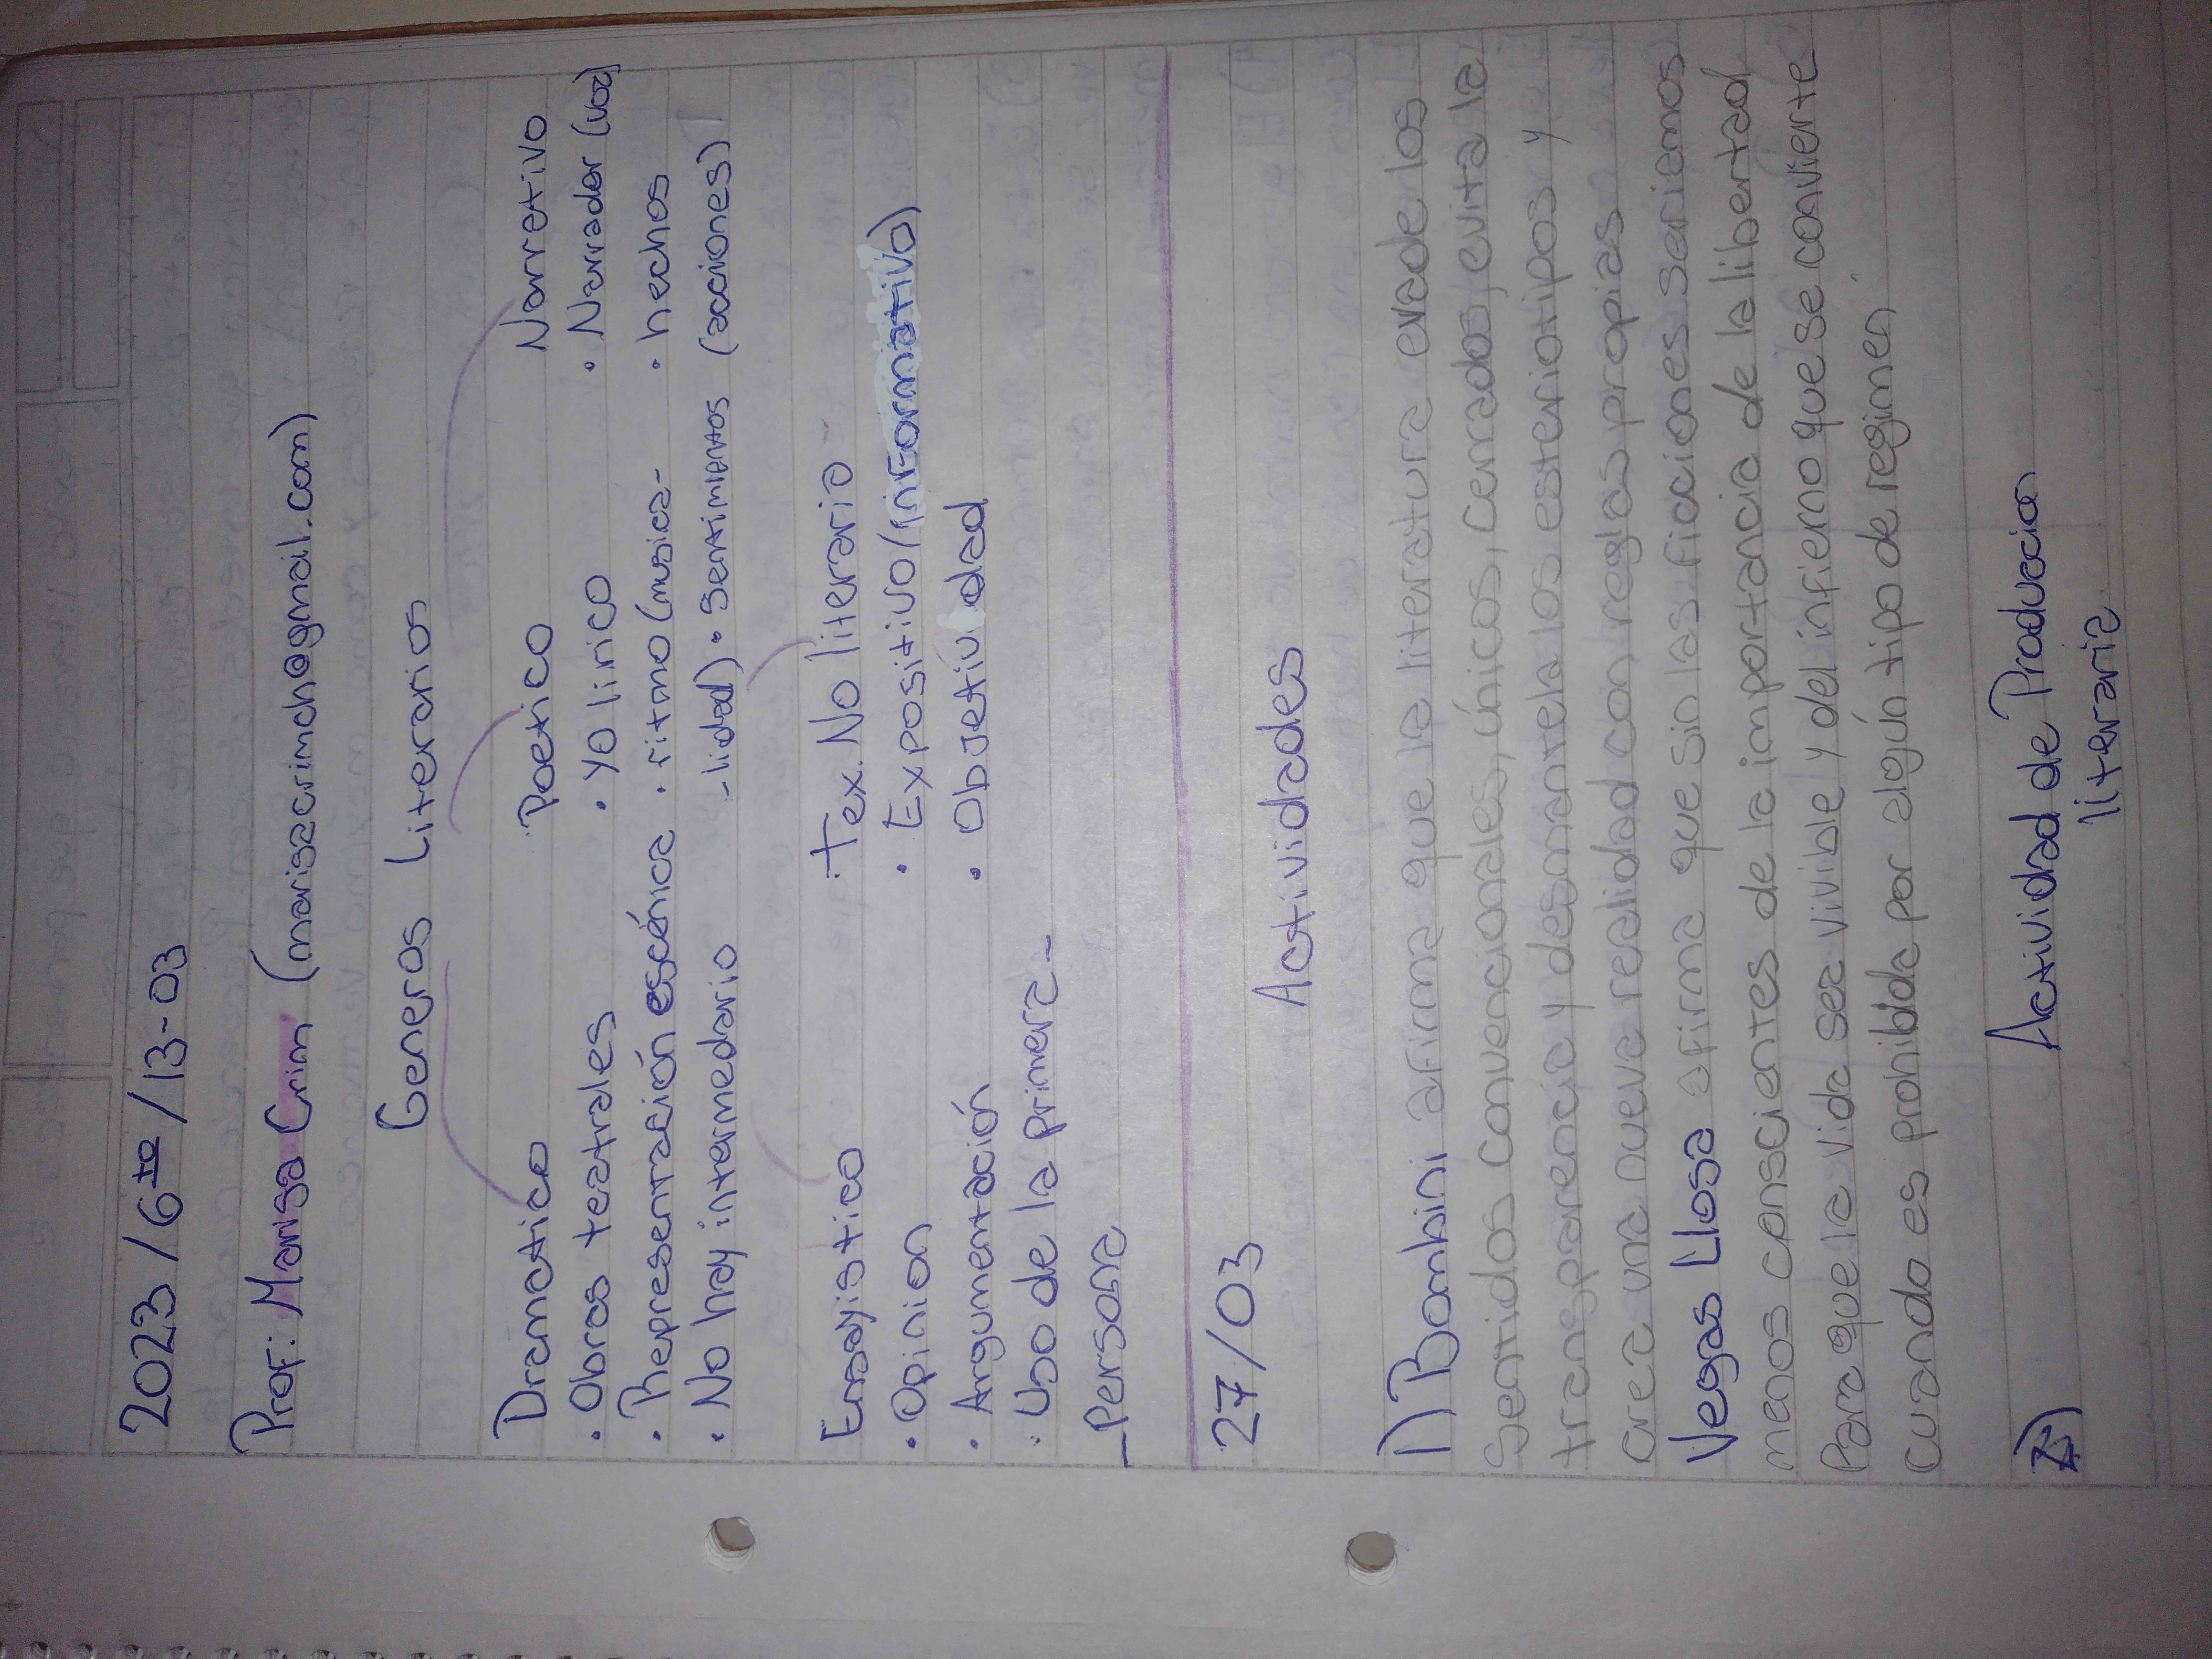 2023 / 6to / 13-03
Prof: Marisa Crim (marisacrimch@gmail.com)
Generos Literarios
Dramatico Poetico Narrativo
· Obras teatrales · Yo lirico · Narrador (voz)
· Representración escénica · ritmo (musica- · hechos
· No hay intermedario -lidad) · Sentimientos (acciones)
Ensayistico Tex. No literario
· Opinion · Expositivo (informativo)
· Argumentación · Objetividad
· Uso de la primera-
-Persona
27/03
Actividades
1) Bombini afirma que la literatura evade los
Sentidos convencionales, únicos, cerrados, evita la
transparencia y desmantela los esteriotipos y
crea una nueva realidad con reglas propias
Vegas Llosa afirma que sin las ficciones seriemos
menos conscientes de la importancia de la libertad
Para que la vida sea vivible y del infierno que se convierte
Cuando es prohibida por algún tipo de regimen
Actividad de Produccion
literaria